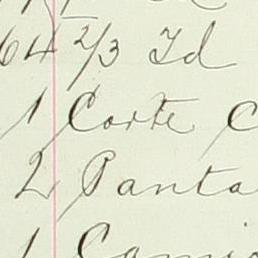 64 2/3 Id
1 Corte C
2 Panta
1 Cami